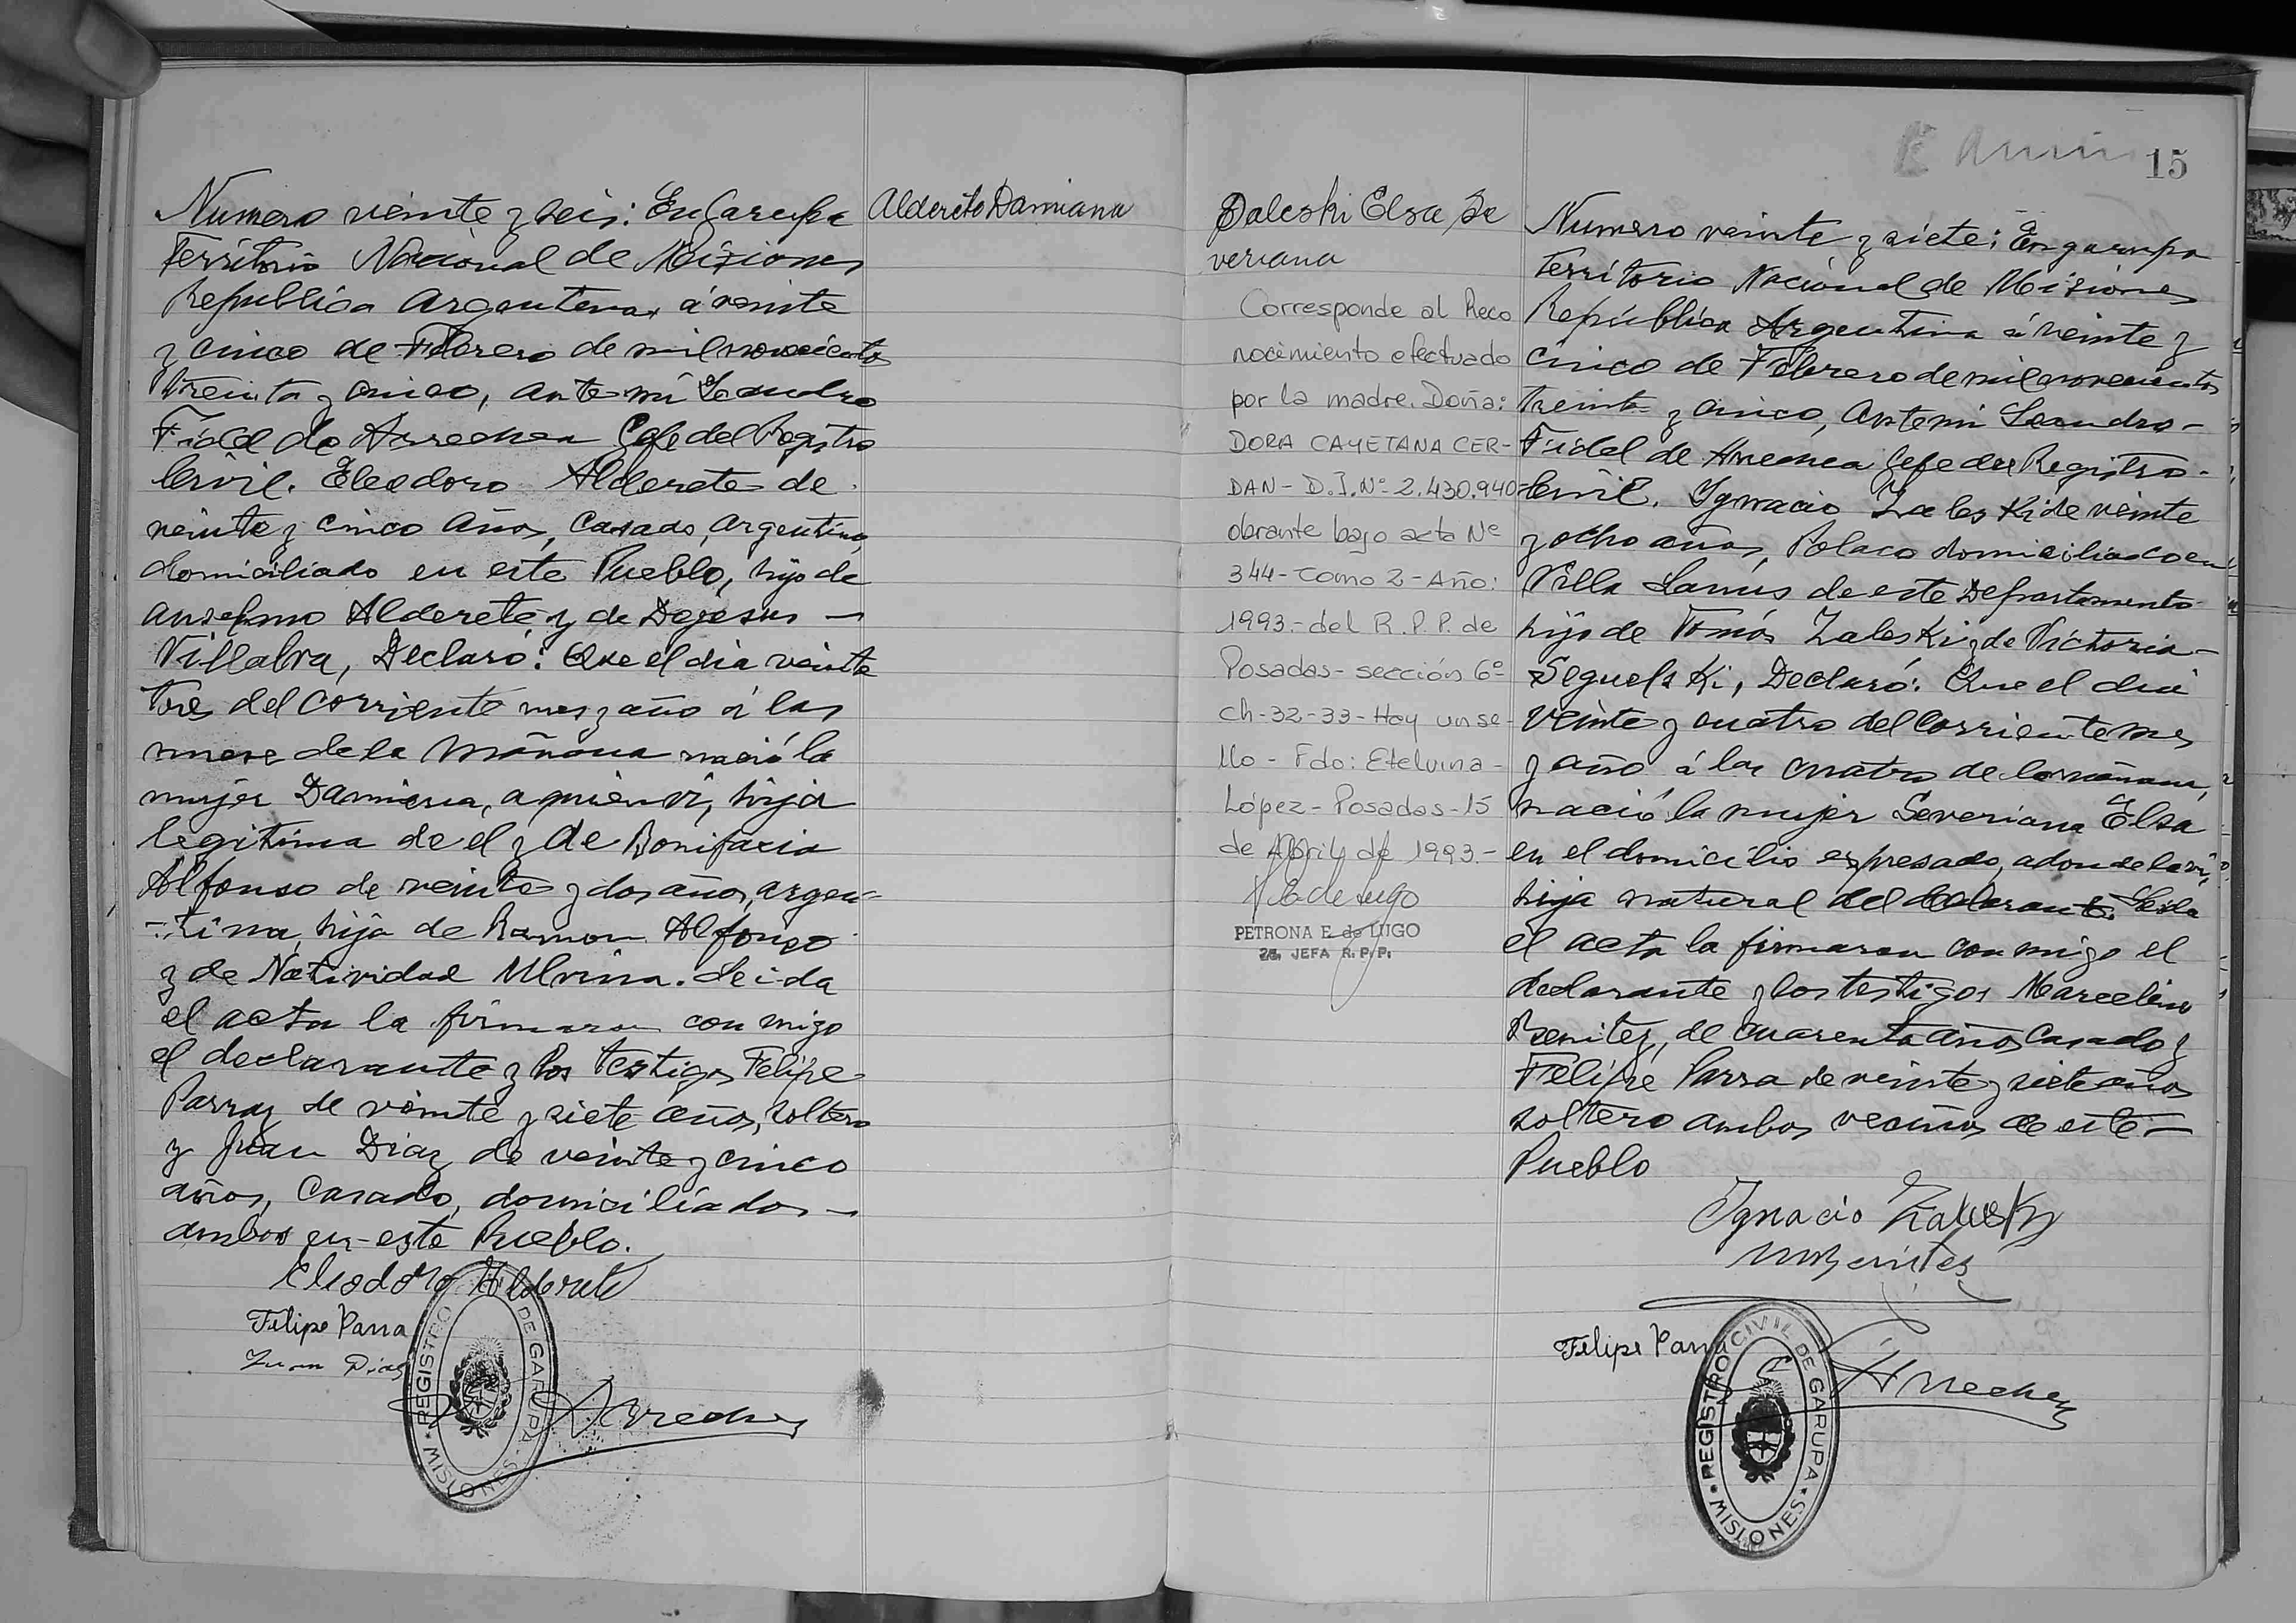 Numero veinte y seis: En Garupa
Territorio Nacional de Misiones
Republica Argentina, á veinte
y cinco de Febrero de mil novecientos
treinta y cinco, ante mí Leandro
Fidel de Arrechea Gefe del Registro
Civil. Eleodoro Alderete de
veinte y cinco años, casado, argentino,
domiciliado en este Pueblo, hijo de
Anselmo Alderete y de Dejesus —
Villalva, Declaró: Que el dia veinte
tres del corriente mes y año á las
nueve de la mañana nació la
mujer Damiana, a quien ví, hija
legitima de el y de Bonifacia
Alfonso de veinte y dos años, argen-
-tina, hija de Ramon Alfonso
y de Natividad Ulrina. Leida
el acta la firmaron con migo
el declarante y los testigos Felipe
Parra, de veinte y siete años, soltero
y Juan Diaz de veinte y cinco
años, casado, domiciliados —
ambos en este Pueblo.
Eliodoro Alderete
Felipe Parra
Juan Diaz
Arrechea
REGISTRO DE GARUPA MISIONES
Alderete Damiana
Daleski Elsa Se
veriana
Corresponde al Reco
nocimiento efectuado
por la madre. Doña:
DORA CAYETANA CER-
DAN - D.I. Nº 2.430.940
obrante bajo acta Nº
344 - Tomo 2 - Año:
1993.- del R.P.P. de
Posadas - sección 6º
Ch-32-33- Hay un se-
llo - Fdo: Etelvina -
López - Posadas - 15
de Abril de 1993.-
PETRONA E. de LUGO
JEFA R.P.P.
15
Numero veinte y siete: En garupa
Territorio Nacional de Misiones
República Argentina á veinte y
cinco de Febrero de mil novecientos
treinta y cinco, Ante mi Leandro —
Fidel de Arrechea Gefe del Registro —
Civil. Ygnacio Zaleski de veinte
y ocho años, Polaco domiciliado en
Villa Lanús de este Departamento
hijo de Tomás Zaleski y de Victoria —
Seguelski, Declaró: Que el dia
veinte y cuatro del corriente mes
y año á las cuatro de la mañana,
nació la mujer Severiana Elsa
en el domicilio expresado, adonde la ví,
hija natural del declarante. Leida
el acta la firmaron con migo el
declarante y los testigos Marcelino
Benitez, de cuarenta años casado y
Felipe Parra de veinte y siete años
soltero ambos vecinos de este —
Pueblo
Ygnacio Zaleski
M Benitez
Felipe Parra
Arrechea
REGISTRO CIVIL DE GARUPA MISIONES